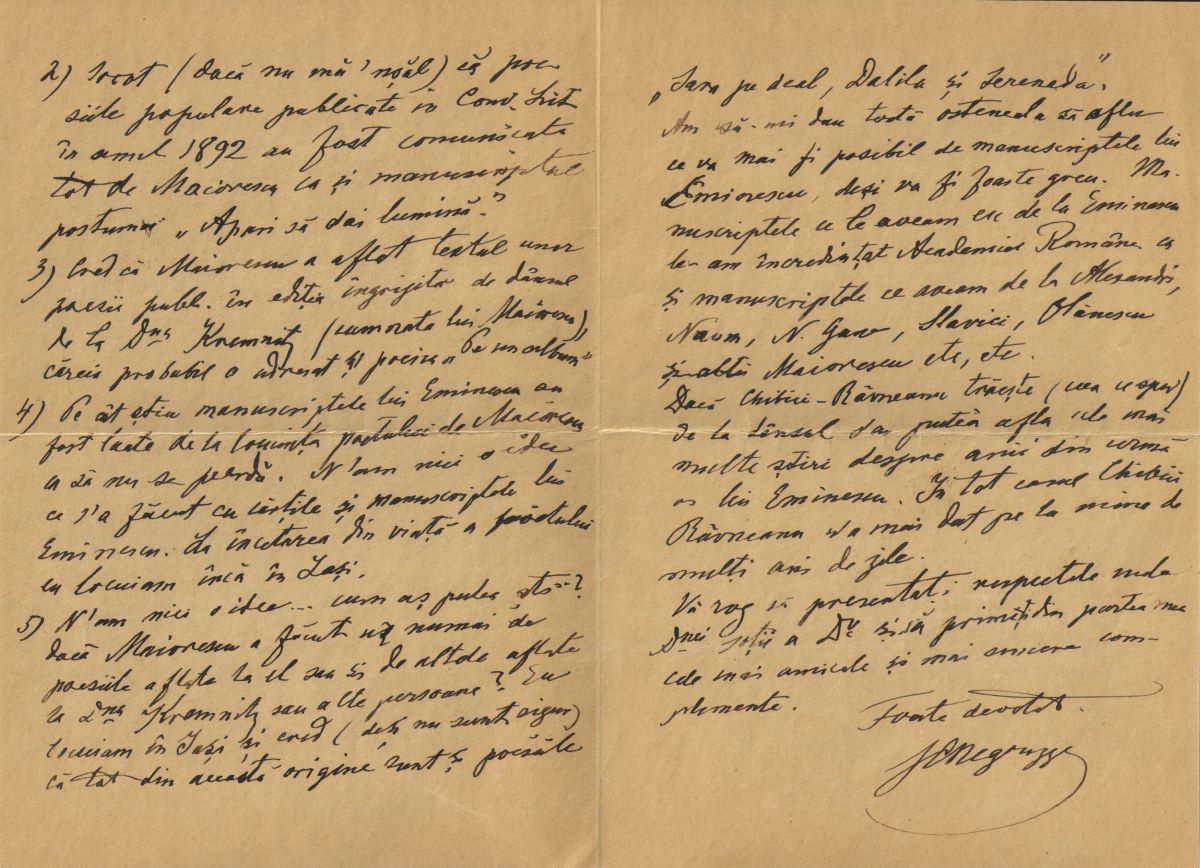 2) Socot (dacă nu mă 'nșăl) că poe-
siile populare publicate în Conv. Lit
în anul 1892 au fost comunicate
tot de Maiorescu ca și manuscriptul
postumei „Apari să dai lumină."
3) Cred că Maiorescu a aflat textul unor
poesii publ. în ediția îngrijită de dânsul
de la Dna Kremnitz (cumnata lui Maiorescu),
căreia probabil o adresat și poezia „Pe un album"
4) Pe cât știu manuscriptele lui Eminescu au
fost luate de la locuința poetului de Maiorescu
ca să nu se peardă. N'am nici o idee
ce s'a făcut cu cărțile și manuscriptele lui
Eminescu. La încetarea din viață a poetului
eu locuiam încă în Iași.
5) N'am nici o idee... cum aș putea ști?
dacă Maiorescu a făcut uz numai de
poesiile aflate la el sau și de altele aflate
la Dna Kremnitz sau alte persoane? Eu
locuiam în Iași și cred (deși nu sunt sigur)
că tot din această origine sunt și poesiile
„Sara pe deal, Dalila și Serenada".
Am să-mi dau totă osteneala să aflu
ce va mai fi posibil de manuscriptele lui
Eminescu, deși va fi foarte greu. Ma-
nuscriptele ce le aveam eu de la Eminescu
le-am încredințat Academiei Române ca
și manuscriptele ce aveam de la Alexandri,
Naum, N. Gane, Slavici, Olănescu
și alții Maiorescu etc, etc.
Dacă Chibici-Râvneanu trăește (ceea ce sper)
de la dînsul s'ar putea afla cele mai
multe știri despre anii din urmă
ai lui Eminescu. În tot casul Chibici
Râvneanu n'a mai dat pe la mine de
mulți ani de zile.
Vă rog să presentați respectele mele
Dnei soții a Dv și să primiți din partea mea
cele mai amicale și mai sincere com-
plimente.
Foarte devotat.
I. Negruzzi